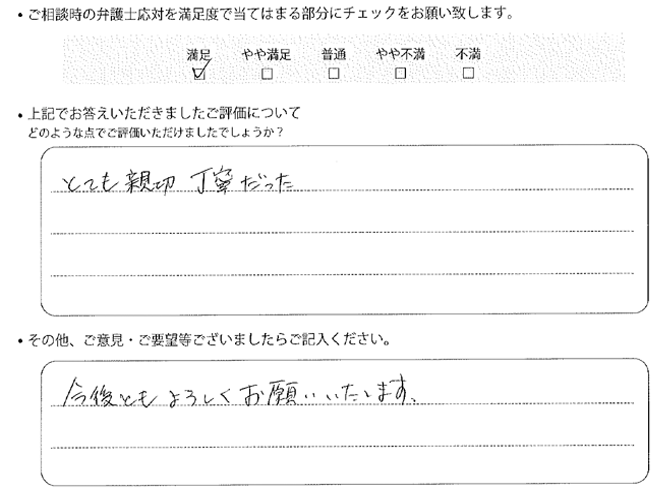 ・ご相談時の弁護士応対を満足度で当てはまる部分にチェックをお願い致します。
満足 やや満足 普通 やや不満 不満
☑ □ □ □ □
・上記でお答えいただきましたご評価について
どのような点でご評価いただけましたでしょうか？
とても親切 丁寧だった
・その他、ご意見・ご要望等ございましたらご記入ください。
今後ともよろしくお願いいたします。